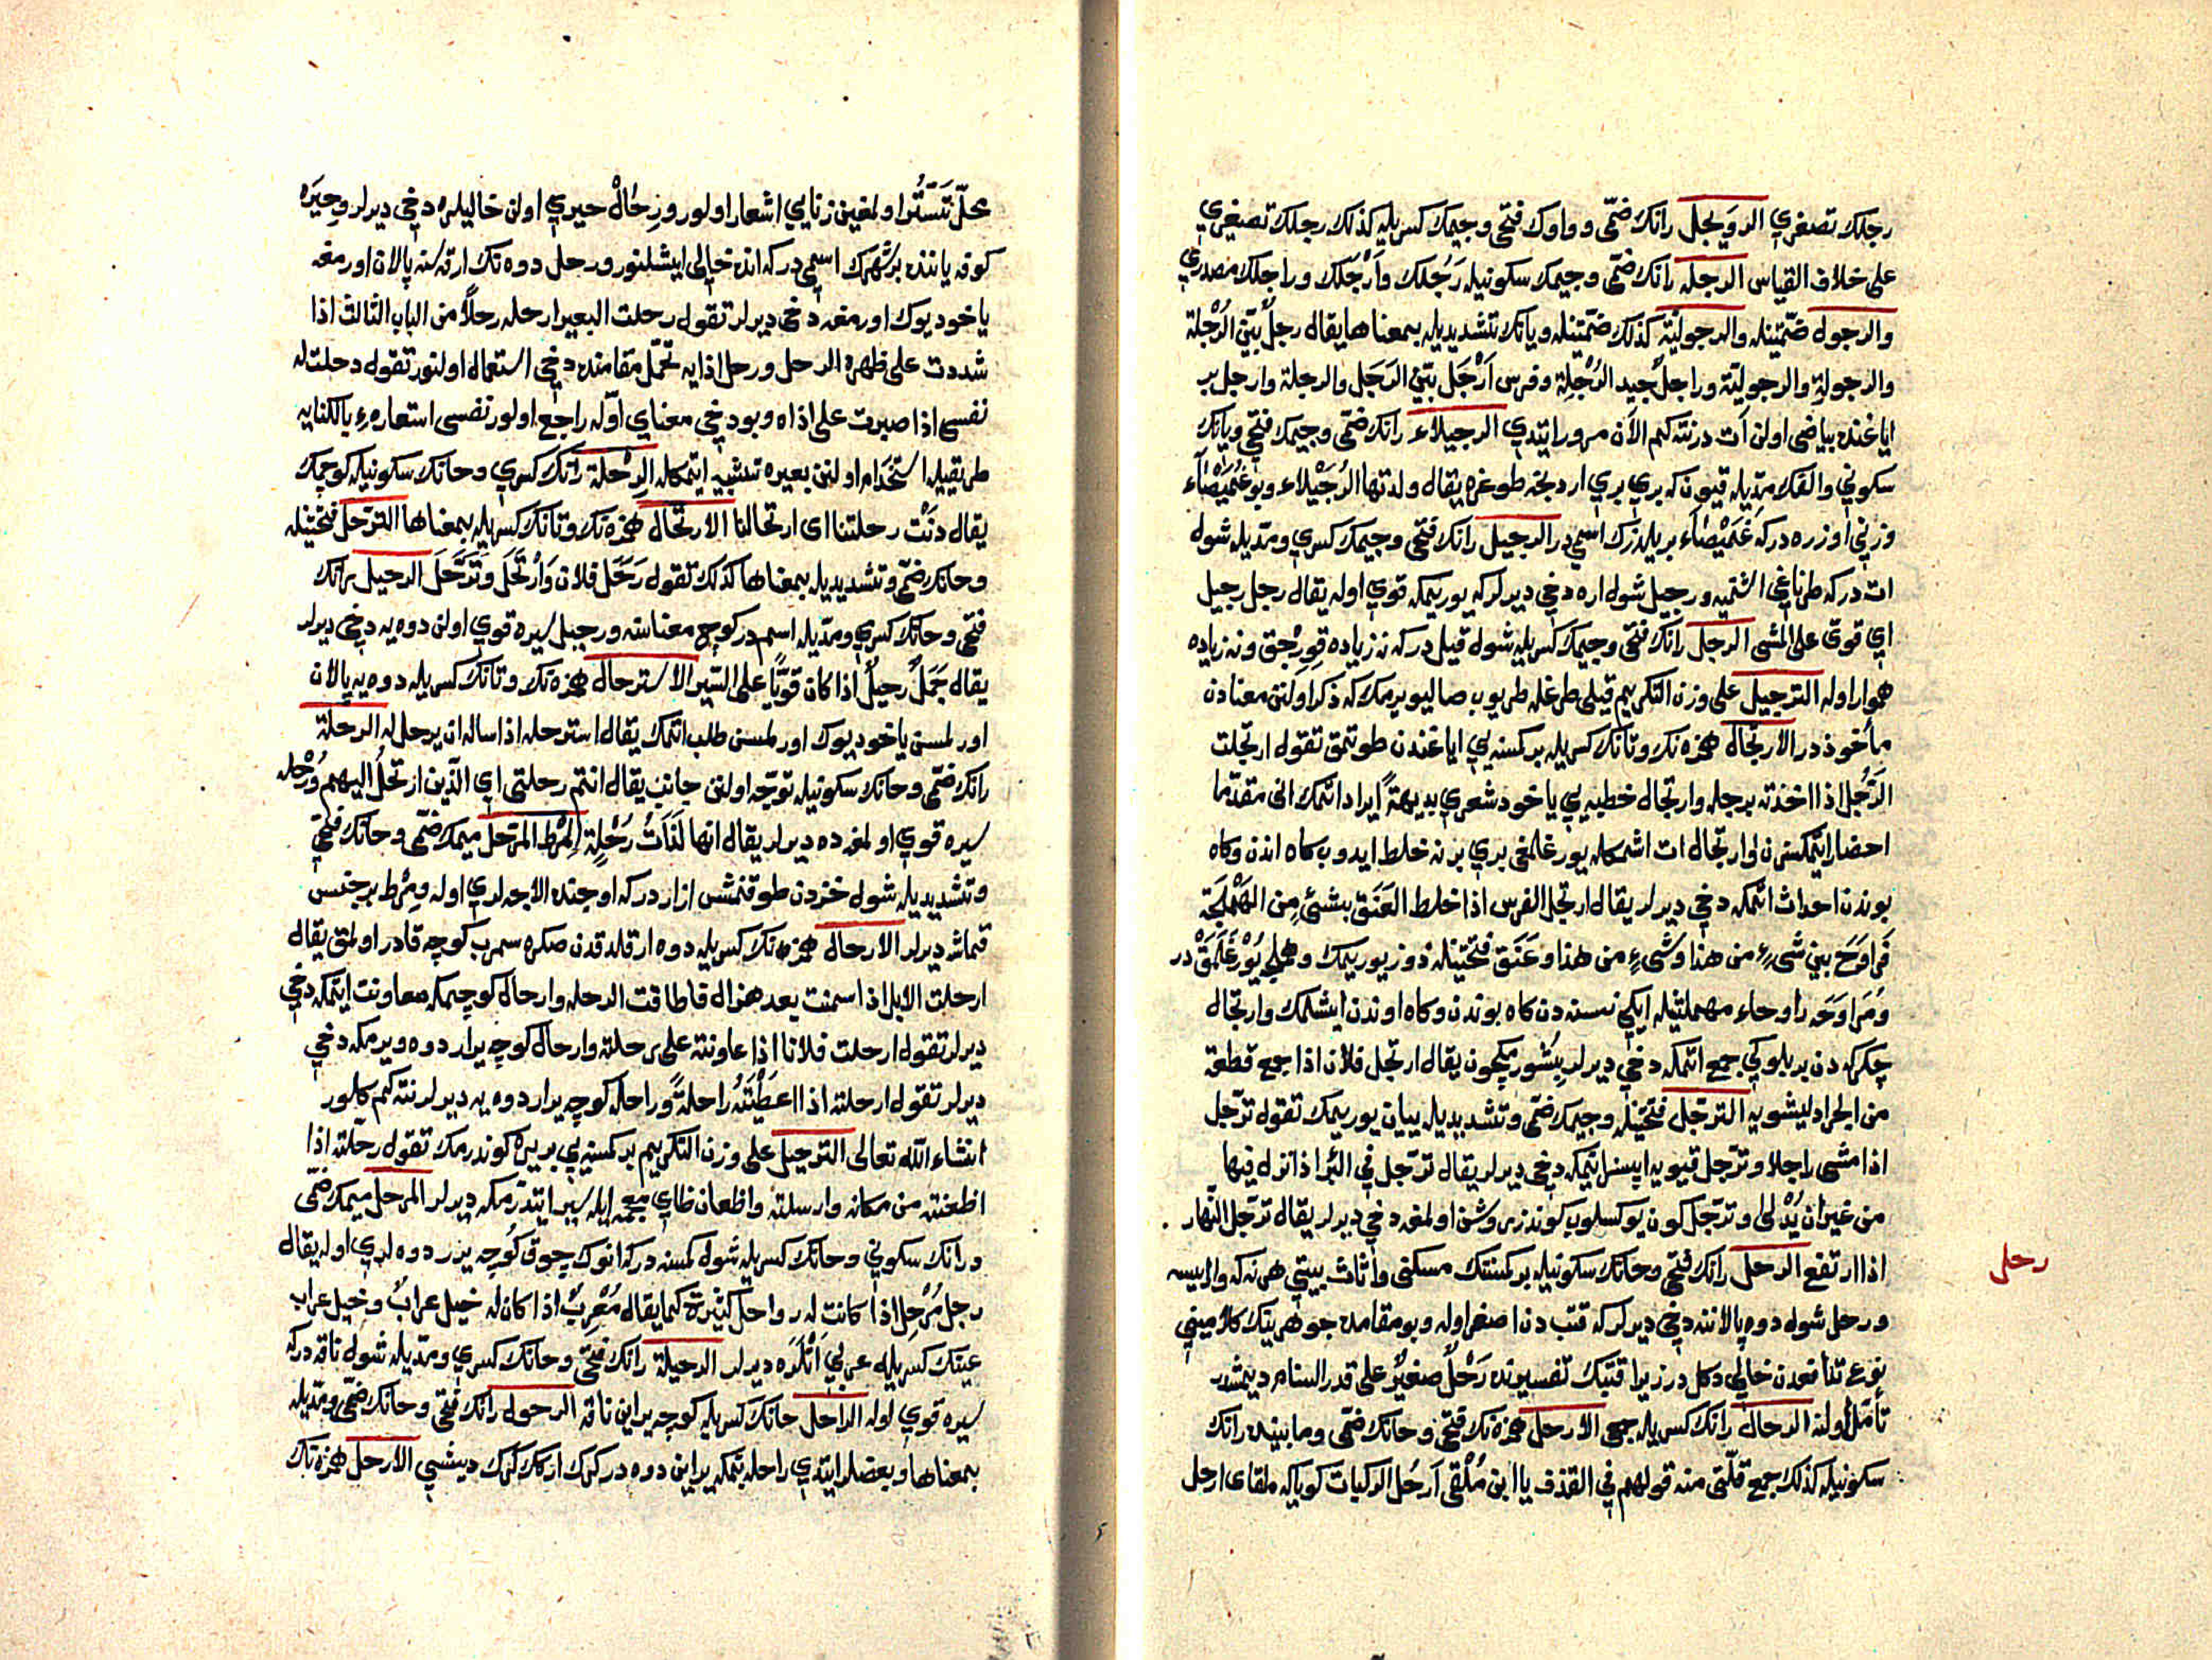 رجلك تصغري الرويجل رانك ضمّى و واوك فتحى وجيمك كسريله كذلك رجلك تصغيري
على خلاف القياس الرجله رانك ضمّى وجيمك سكونيله رَجُلك وأَرْجَلك وراجلك مصدري
والرجوله ضمّتينله والرجوليّة كذلك ضمّتينله ويانك تشديديله بمعناها يقال رجلٌ بيّن الرُّجْلة
والرجولة والرجوليّة وراجلٌ جيد الرُّجْلة وفرس اَرْجَل بيّن الرَجَل والرجلة وارجل بر
اياغنده بياضى اولن اَت درنته كيم الآن مرور ايتدي الرجيلاء رانك ضمّى وجيمك فتحى ويانك
سكوني والفك مدّيله قيون كه بري بري اردنجه طوغره يقال ولدتها الرُجَيْلاء وبو غُمَيْصَآء
وزني اوزره دركه غُمَيْصَاء بر يلدزك اسمي در الرجيل رانك فتحى وجيمك كسري ومدّيله شوله
ات دركه طرناغي اشنميه ورجيل شوله اره دخي ديرلركه يوريمكه قوي اوله يقال رجل رجيل
اي قويّ على المشى الرجل رانك فتحى وجيمك كسريله شوله قيل دركه نه زياده قِوِرْجق ونه زياده
هموار اوله الترجيل على وزن التكريم قيلى طرغله طريوب صاليويرمك كه ذكر اولنن معنادن
مأخوذدر الارتجال همزه نك وتانك كسريله بر كمسنه يي اياغندن طوتمق تقول ارتجلت
الرَّجُل اذا اخذته برجله وارتجال خطبه يي ياخود شعري بديهةً ايراد اتمك انى مقدّما
احضار ايتمكسزن وارتجال ات اشمكله يورغلمغى بري برنه خلط ايدوب كاه اندن وكاه
بوندن احداث اتمكه دخي ديرلر يقال ارتجل الفرس اذا خلط العَنَق بشئ مِن الهَمْلَجَة
فَرَاوَحَ بين شَىءٍ من هذا وشَىءٍ من هذا وعَنَق فتحتينله دوز يوريمك وهملجه يُوْرغَلَمَقْ در
ومُرَاوَحَه را وحاء مهملتينله ايكي نسنه دن كاه بوندن وكاه اوندن ايشلمك وارتجال
چكركه دن بر بلوكي جمع اتمكه دخي ديرلر بِشُورمكچون يقال ارتجل فلان اذا جمع قطعة
من الجراد ليشويه الترجّل فتحتينله وجيمك ضمّى وتشديديله يپان يوريمك تقول ترجّل
اذا مشى راجلا وترجّل قيويه ايپسز ايتمكه دخي ديرلر يقال ترجّل في البئر اذا نزل فيها
من غير ان يُدْلى وترجّل كون يوكسلوب كوندزى روشن اولمغه دخي ديرلر يقال ترجّل النّهار
اذا ارتفع الرحل رانك فتحى وحانك سكونيله بر كمسنتك مسكنى واثاث بيتي هر نه كه وار ايسه
ورحل شوله دوه پالاننه دخي ديرلركه قتب دن اصغر اوله وبو مقامده جوهرينك كلاميني
نوع تنافعدن خالي دكلدر زيرا قتبك تفسيرنده رَحْلٌ صغيرٌ على قدر السنام ديمشدر
تأمّل اولنه الرحال رانك كسريله جمع الارحل همزه نك فتحى وحانك ضمّى ومابينده رانك
سكونيله كذلك جمع قلّتى منه قولهم في القذف يا ابن مُلْقى اَرحُل الركبان كوياكه ملقاى ارحل
رحل
محلّ تَسَتُّر اولمغين زنايي اشعار اولور ورِحَالْ حيري اولن خاليلره دخي ديرلر وحِيرَه
كوفه ياننده بر شهرك اسمي دركه انده خالى ايشلنور ورحل دوه نك ارقه سنه پالان اورمغه
ياخود يوك اورمغه دخى ديرلر تقول رحلت البعير ارحله رحلاً من الباب الثالث اذا
شددت على ظهره الرحل ورحل اذايه تحمّل مقامنده دخي استعمال اولنور تقول رحلت له
نفسى اذا صبرت على اذاه وبو دخي معناي اوّله راجع اولور نفسى استعارهء بالكنايه
طريقيله استخدام اولنن بعيره تشبيه ايتمكله الرِحْلة رانك كسري وحانك سكونيله كوچمك
يقال دَنَتْ رحلتنا اى ارتحالنا الارتحال همزه نك وتانك كسريله بمعناها الترحّل فتحتينله
وحانك ضمّى وتشديديله بمعناها كذلك تقول رَحَلَ فلان وَاْرتَحَلَ وَتَرَحَّلَ الرحيل رانك
فتحى وحانك كسري ومدّيله اسم در كوچ معناسنه ورحيل سيره قوي اولن دوه يه دخى ديرلر
يقال جَمَلٌ رحيلٌ اذا كان قويًّا على السّير الاسترحال همزه نك وتانك كسريله دوه يه پالان
اورلمسن ياخود يوك اورلمسن طلب اتمك يقال استرحله اذا ساله ان يرحل له الرحلة
رانك ضمّى وحانك سكونيله توجّه اولنن جانب يقال انتم رحلتى اي الّذين ارتحلُ اليهم ورُحْله
سيره قوي اولمغه ده ديرلر يقال انها لَذَاتُ رُحْلَةٍ المِرْط المرحّل ميمك ضمّى وحانك فتحى
وتشديديله شوله خزدن طوقنمش ازاردركه اوجنده الاجه لري اوله ومِرط بر جنس
قماشه ديرلر الارحال همزه نك كسريله دوه ارقلقدن صكره سمرب كوچه قادر اولمق يقال
ارحلت الابل اذا سمنت بعد هزال فاطاقت الرحله وارحال كوچمكه معاونت ايتمكه دخي
ديرلر تقول ارحلت فلانا اذا عاونته على رحلته وارحال كوچه يرار دوه ويرمكه دخي
ديرلر تقول ارحلته اذا اعطَيْتَهُ راحلةً وراحل كوچه يرار دوه يه ديرلر نته كم كلور
انشاء الله تعالى الترحيل على وزن التكريم بر كمسنه يي بر يره كوندرمك تقول رحّلته اذا
اظعنته من مكانه وارسلته واظعان ظاي معجمه ايله سير ايتدرمكه ديرلر المرحل ميمك ضمّى
ورانك سكوني وحانك كسريله شوله كمسنه دركه انوك چوق كوچه يرر دوه لري اوله يقال
رجل مُرْحِل اذا كانت له رواحل كثيرة كما يقال مُعْرِبٌ اذا كان له خيل عرابٌ وخيل عراب
عينك كسريله عربي اَتْلَرَه ديرلر الرحيلة رانك فتحى وحانك كسري ومدّيله شوله ناقه دركه
سيره قوي اوله الراحل حانك كسريله كوچه يراين ناقه الرحول رانك فتحى وحانك ضمّى ومدّيله
بمعناها وبعضلر ايتدي راحله بنمكه يراين دوه در كرك اركك كرك ديشي الارحل همزه نك